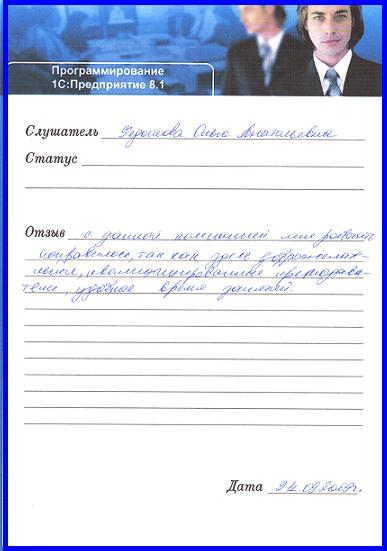 Программирование
1С:Предприятие 8.1
Слушатель Ольга Анатольевна
Статус
Отзыв с данной компанией мне работать
понравилось, так как здесь доброжелат-
ельные, квалифицированные преподава-
тели, удобное время занятий.
Дата